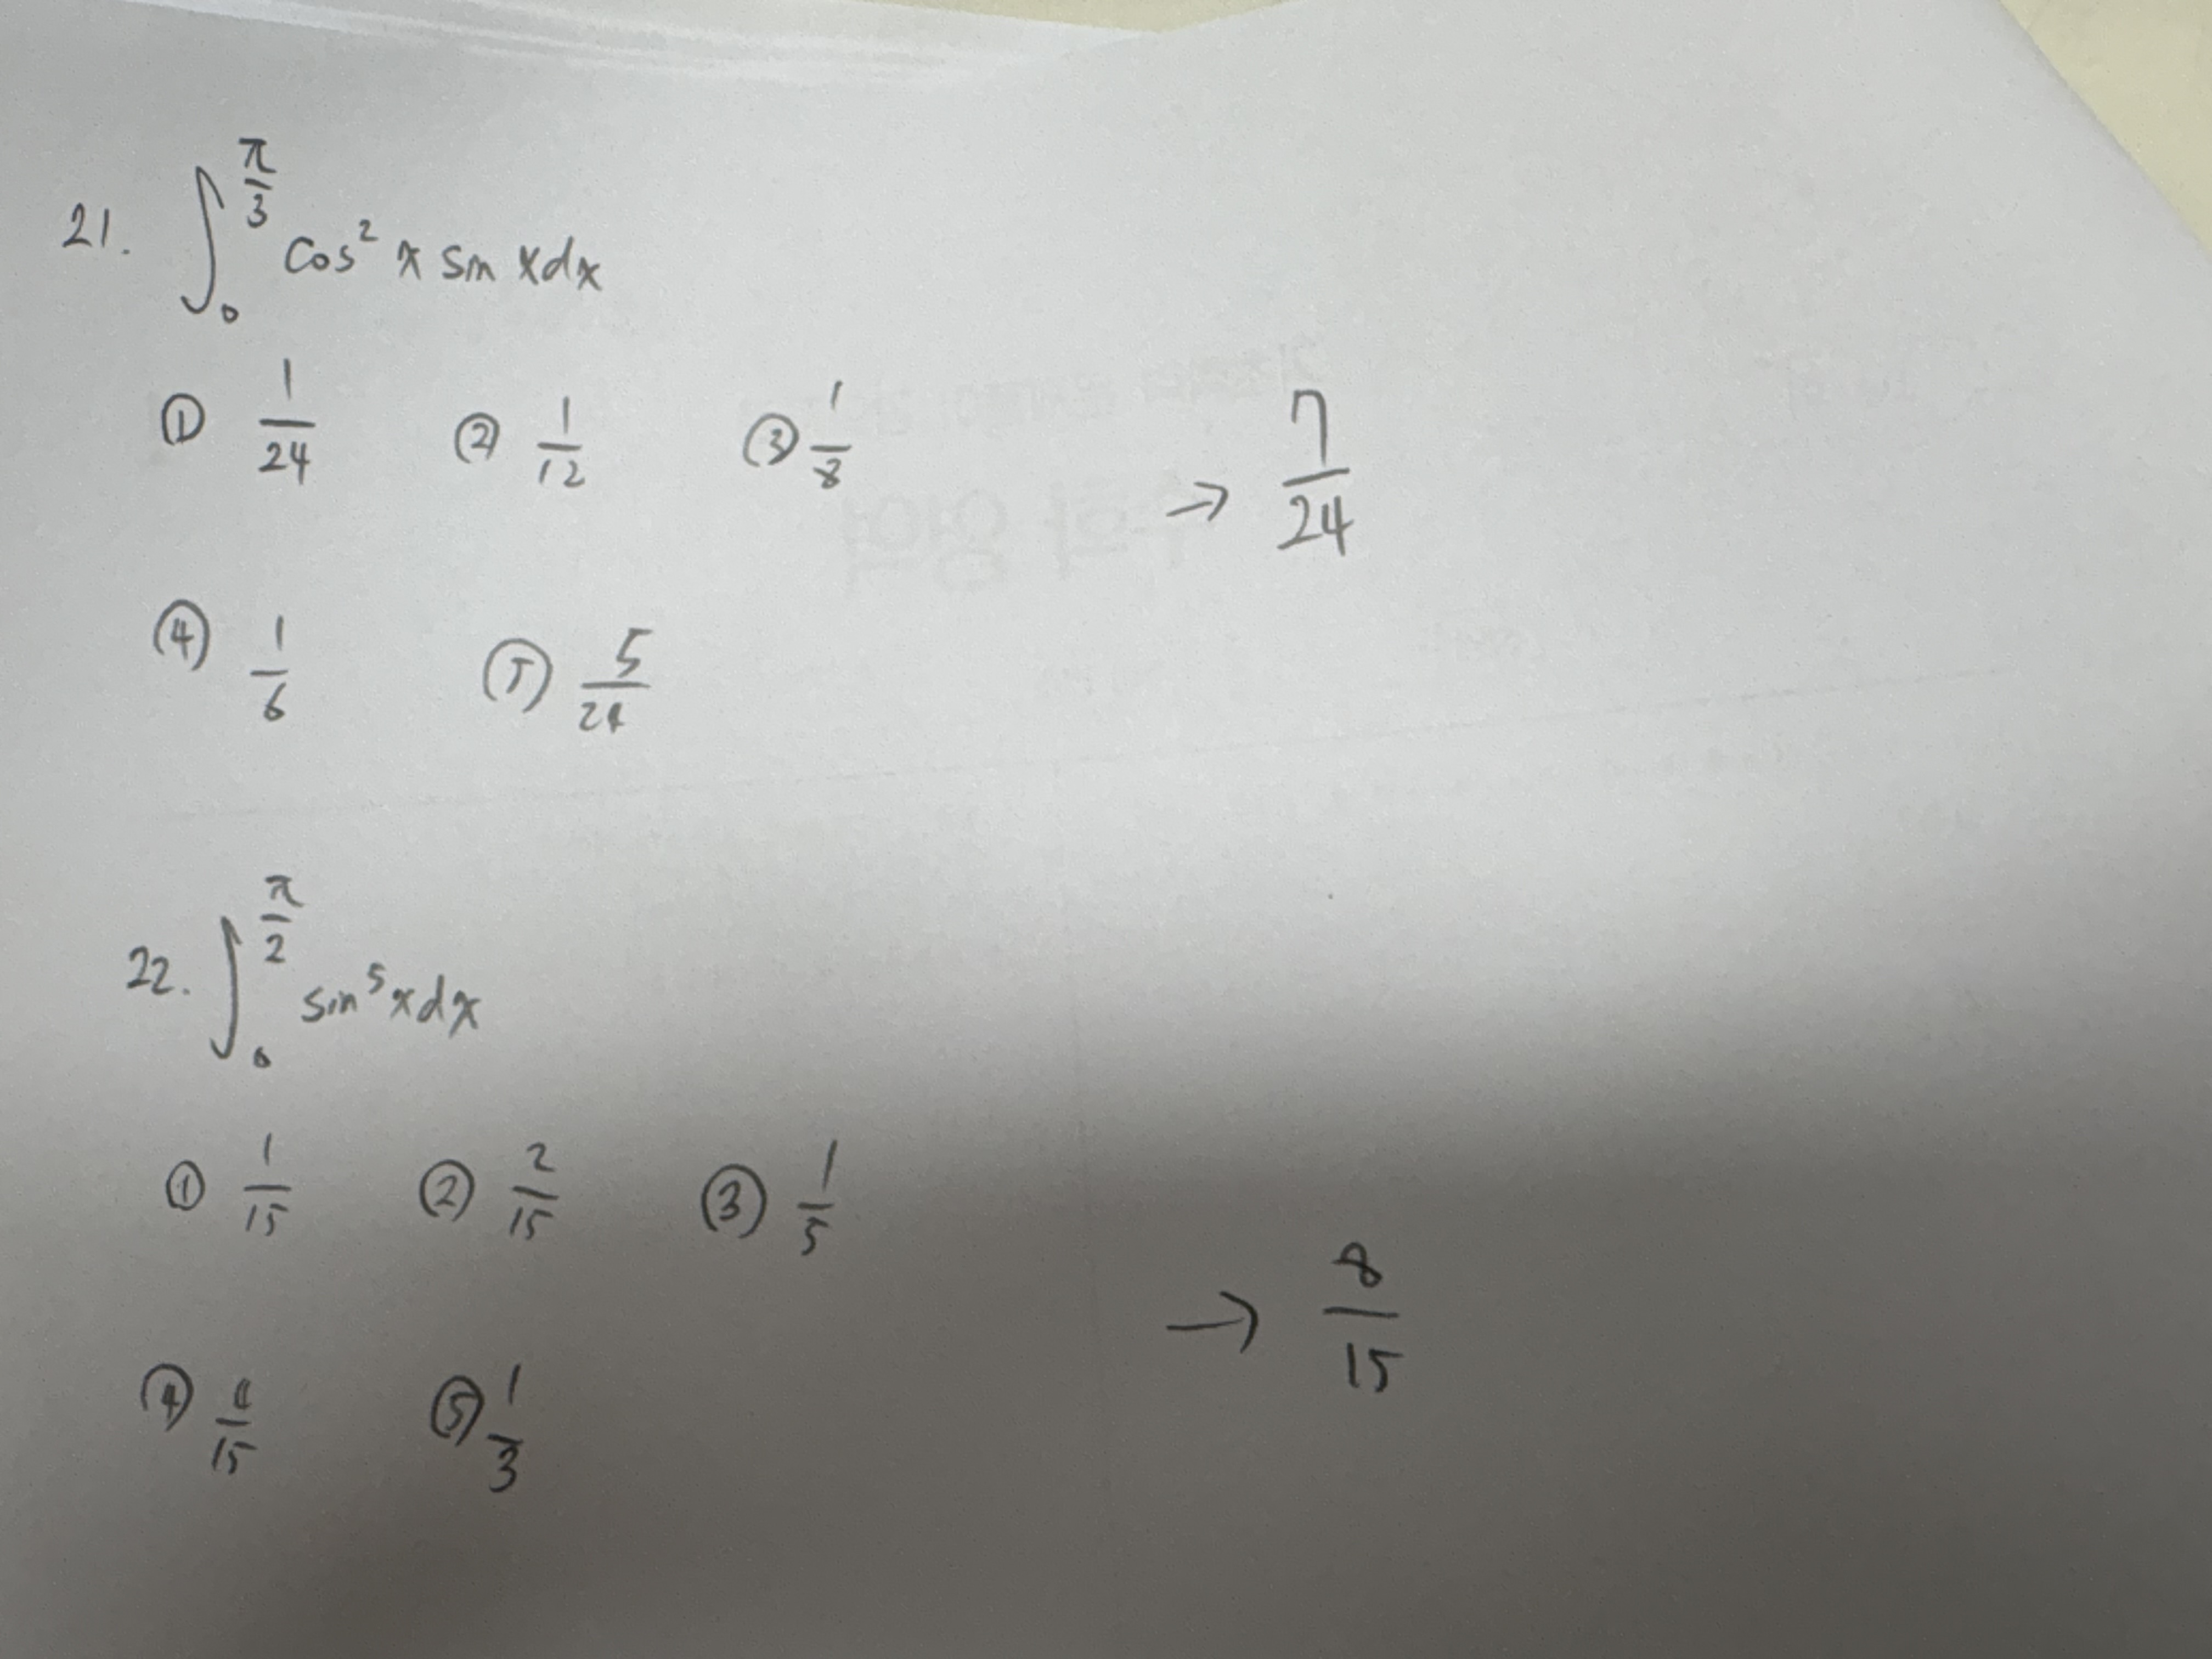 21. ∫₀^(π/3) cos² x sin x dx
① 1/24 ② 1/12 ③ 1/8
→ 7/24
④ 1/6 ⑤ 5/24
22. ∫₀^(π/2) sin⁵ x dx
① 1/15 ② 2/15 ③ 1/5
→ 8/15
④ /15 ⑤ 1/3